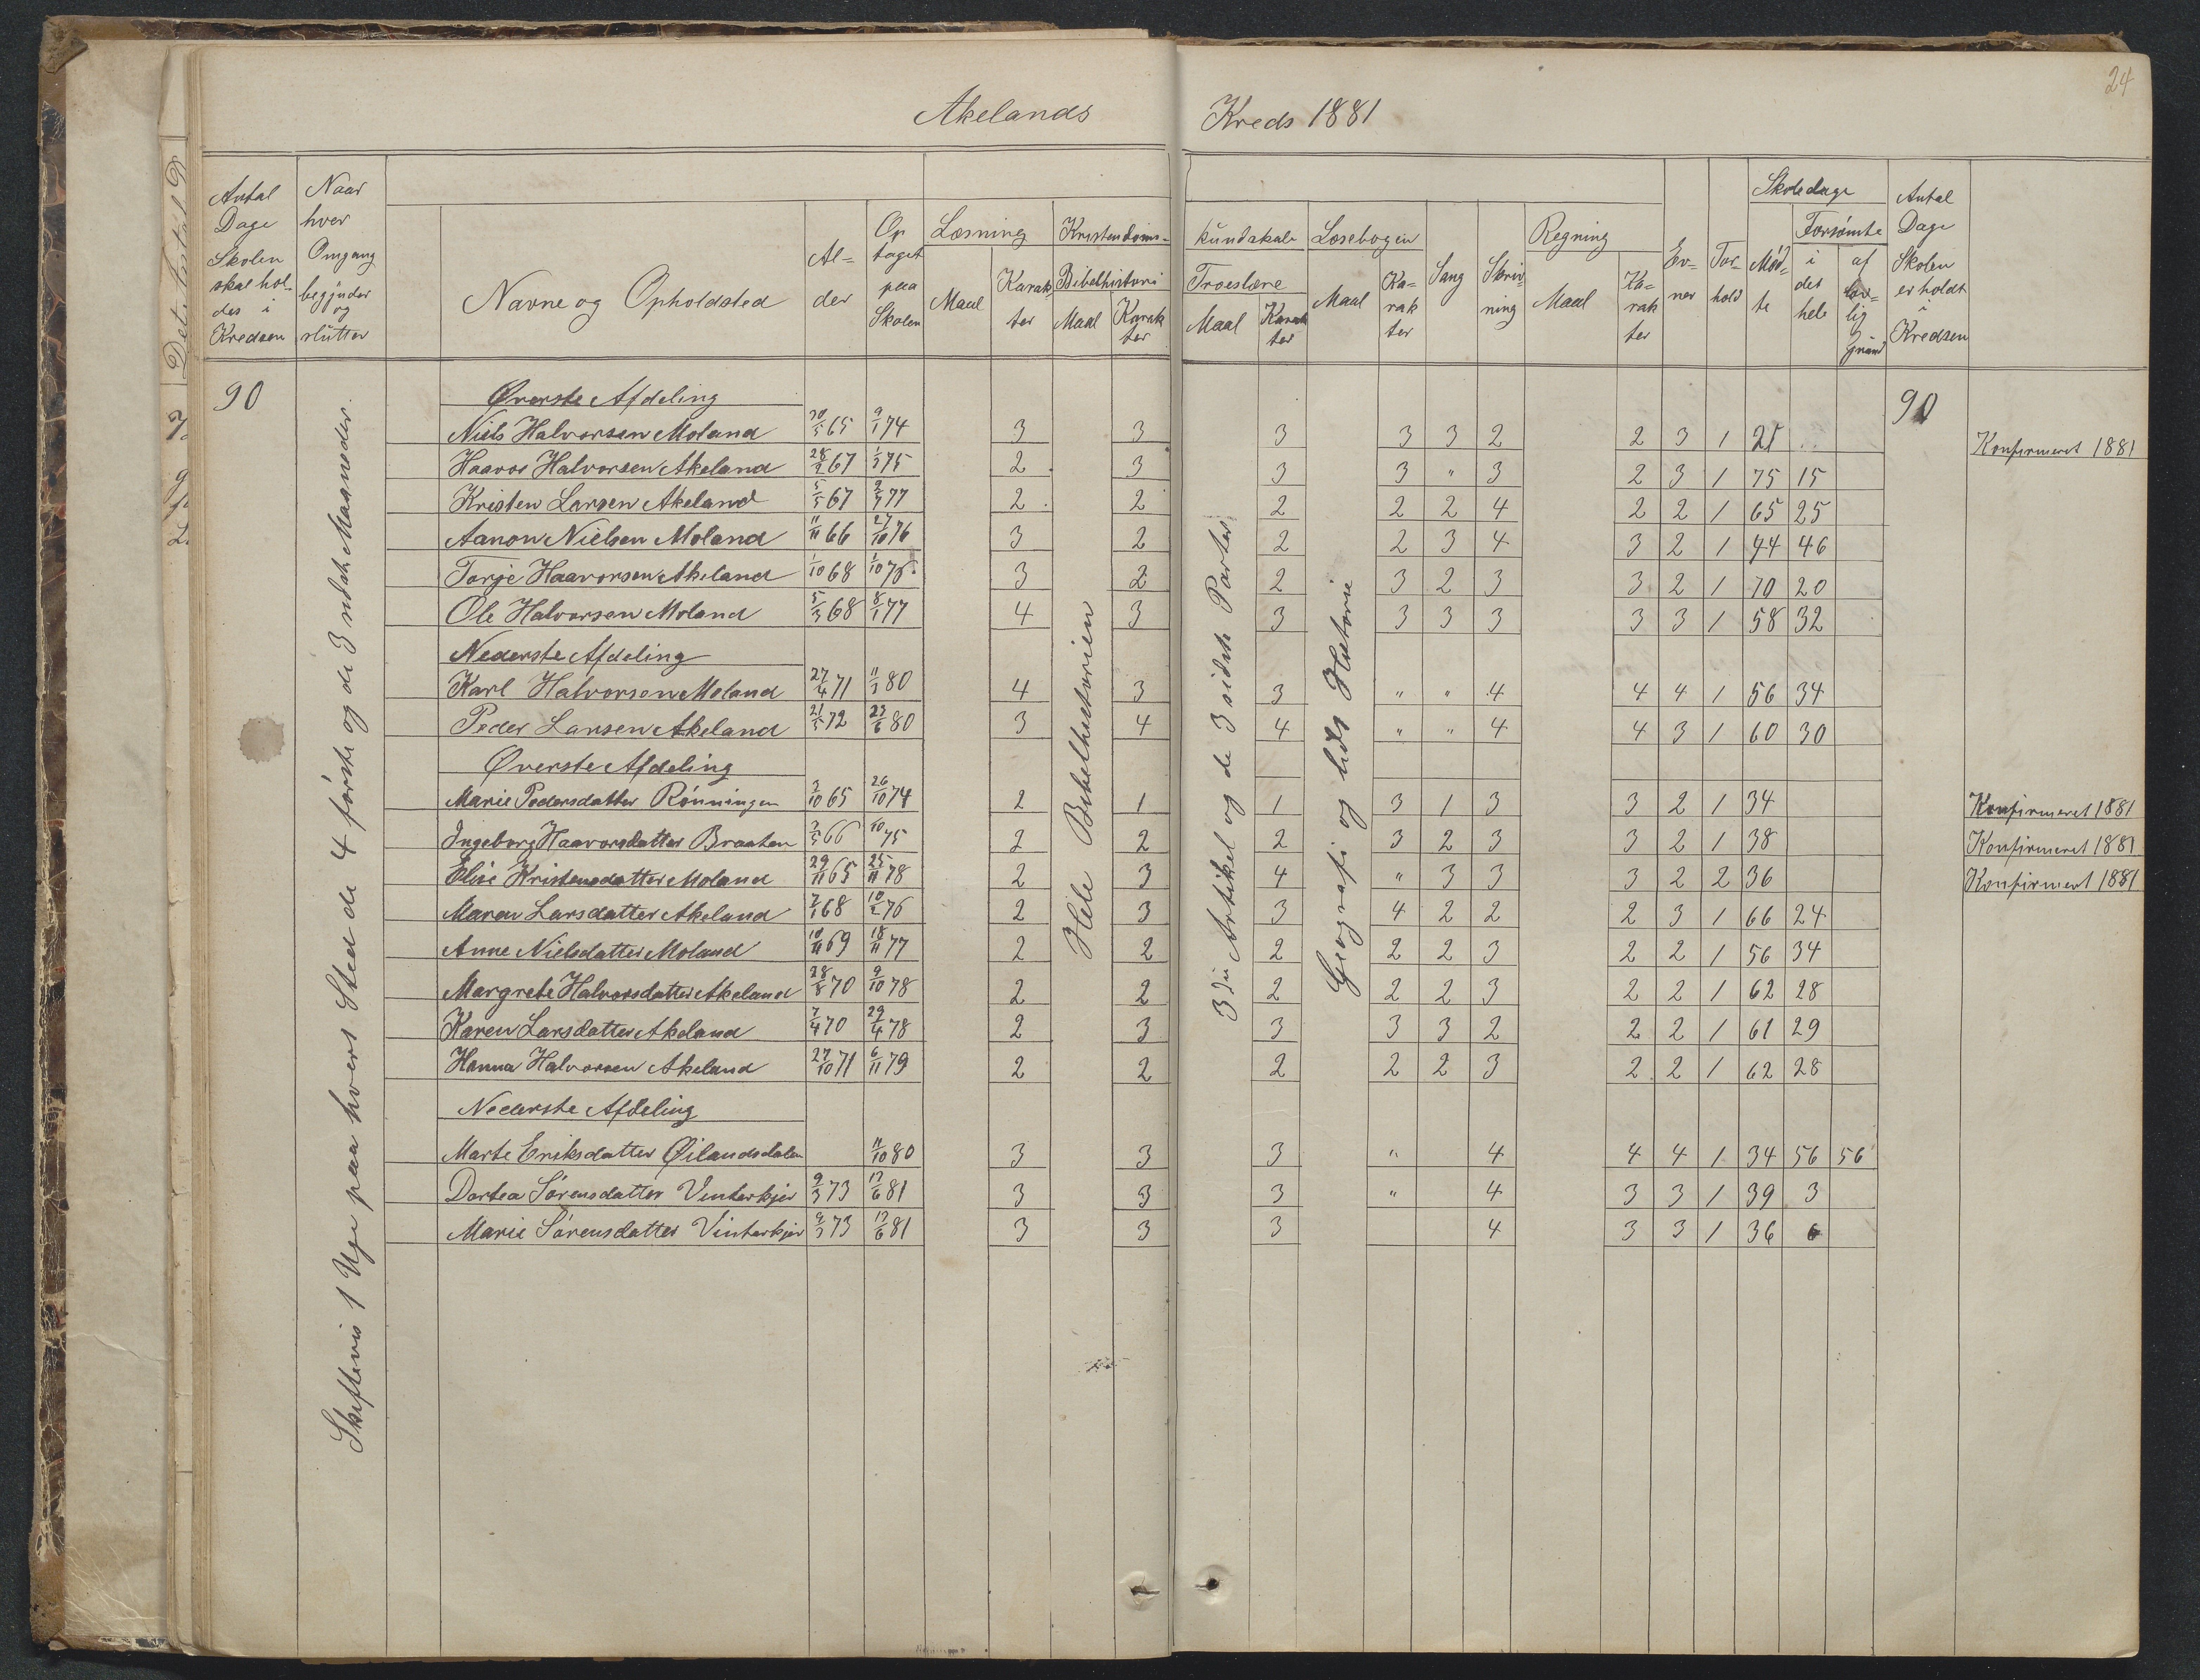 24
Akelands Kreds 1881
Antal Dage Skolen skal holdes i Kredsen
Naar hver Omgang begynder og slutter
Navne og Opholdsted
Al-der
Optaget paa Skolen
Læsning
Maal
Karakter
Kristendoms-kundskab
Bibelhistorie
Maal
Karakter
Troeslære
Maal
Karakter
Læsebogen
Maal
Karakter
Sang
Skrivning
Regning
Maal
Karakter
Evner
Forhold
Skoledage
Mødte
Forsømte
i det hele
af lovlig Grund
Antal Dage Skolen er holdt i Kredsen
90
90
Skiftevis 1 Uge paa hvert Sted de 4 første og de 3 sidste Maaneder.
Hele Bibelhistorien
Artikel og de 3 sidste Parter
Geografi og lidt Historie
Øverste Afdeling
Niels Halvorsen Moland 30/5 65 9/1 74 3 3 3 3 3 2 2 3 1 21 Konfirmeret 1881
Haavor Halvorsen Akeland 28/2 67 1/3 75 2 3 3 3 " 3 2 3 1 75 15
Kristen Larsen Akeland 5/5 67 2/7 77 2 2 2 2 2 4 2 2 1 65 25
Aanon Nielsen Moland 11/11 66 27/10 76 3 2 2 2 3 4 3 2 1 44 46
Torje Haavorsen Akeland 1/10 68 3 2 2 3 2 3 3 2 1 70 20
Ole Halvorsen Moland 5/3 68 8/1 77 4 3 3 3 3 3 3 3 1 58 32
Nederste Afdeling
Karl Halvorsen Moland 27/4 71 11/3 80 4 3 3 " " 4 4 4 1 56 34
Peder Larsen Akeland 21/5 72 23/6 80 3 4 4 " " 4 4 3 1 60 30
Øverste Afdeling
Marie Pedersdatter Rönningen 3/10 65 26/10 74 2 1 1 3 1 3 3 2 1 34 Konfirmeret 1881
Ingeborg Haavorsdatter Braaten 3/5 66 75 2 2 2 3 2 3 3 2 1 38 Konfirmeret 1881
Elise Kristensdatter Moland 29/11 65 25/11 78 2 3 4 " 3 3 3 2 2 36 Konfirmert 1881
Maren Larsdatter Akeland 7/1 68 10/2 76 2 3 3 4 2 2 2 3 1 66 24
Anne Nielsdatter Moland 10/11 69 18/11 77 2 2 2 2 2 3 2 2 1 56 34
Margrete Halvorsdatter Akeland 28/8 70 9/10 78 2 2 2 2 2 3 2 2 1 62 28
Karen Larsdatter Akeland 7/4 70 29/4 78 2 3 3 3 3 2 2 2 1 61 29
Hanna Halvorsen Akeland 27/10 71 6/11 79 2 2 2 2 2 3 2 2 1 62 28
Nederste Afdeling
Marte Eriksdatter Øilandsdalen 11/10 80 3 3 3 " 4 4 4 1 34 56 56
Dortea Sørensdatter Vinterkjer 9/3 73 13/6 81 3 3 3 " 4 3 3 1 39 3
Marie Sörensdatter Vinterkjer 9/3 73 13/6 81 3 3 3 4 3 3 1 36 6